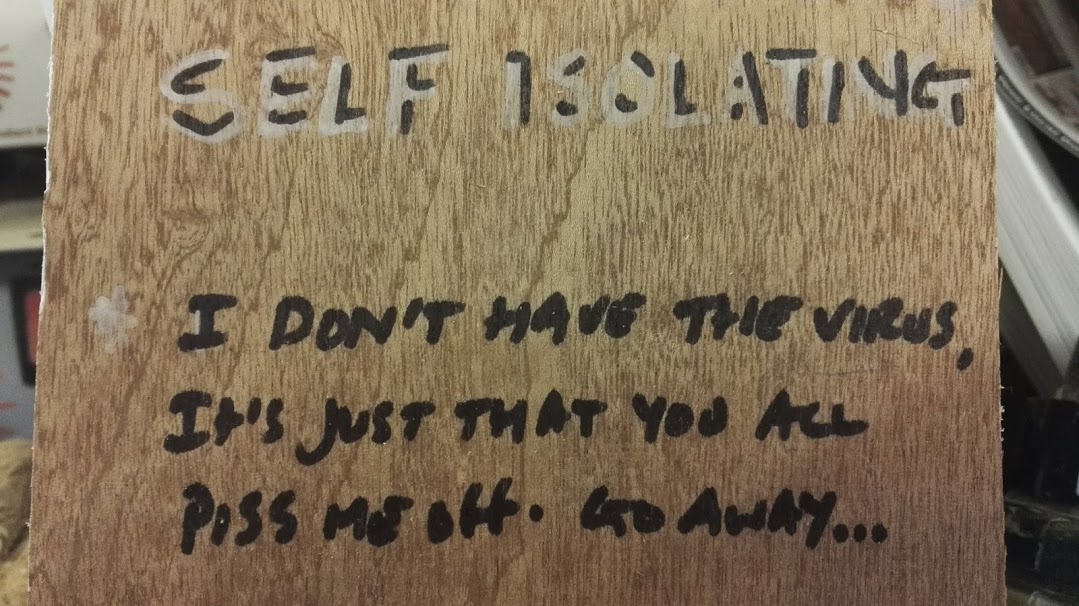 SELF ISOLATING
* I DON'T HAVE THE VIRUS,
It's JUST THAT YOU ALL
PISS ME Off. GO AWAY...